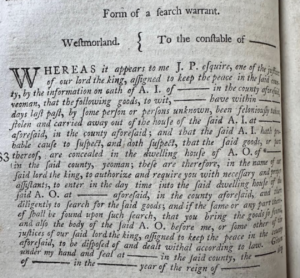 Form of a search warrant.
Westmorland. { To the constable of
WHEREAS it appears to me J. P. esquire, one of the justices
of our lord the king, assigned to keep the peace in the said coun-
ty, by the information on oath of A. I. of — in the county aforesaid,
yeoman, that the following goods, to wit, — have within —
days last past, by some person or persons unknown, been feloniously taken,
stolen and carried away out of the house of the said A. I. at —
aforesaid, in the county aforesaid; and that the said A. I. hath pro-
bable cause to suspect, and doth suspect, that the said goods, or part
thereof, are concealed in the dwelling house of A. O. of —
in the said county, yeoman; these are therefore, in the name of our
said lord the king, to authorize and require you with necessary and proper
assistants, to enter in the day time into the said dwelling house of the
said A. O. at — aforesaid, in the county aforesaid, and there
diligently to search for the said goods; and if the same or any part thereof
shall be found upon such search, that you bring the goods so found
and also the body of the said A. O. before me, or some other of the
justices of our said lord the king, assigned to keep the peace in the county
aforesaid, to be disposed of and dealt withal according to law. Given
under my hand and seal at — in the said county, the —
of — in the — year of the reign of —